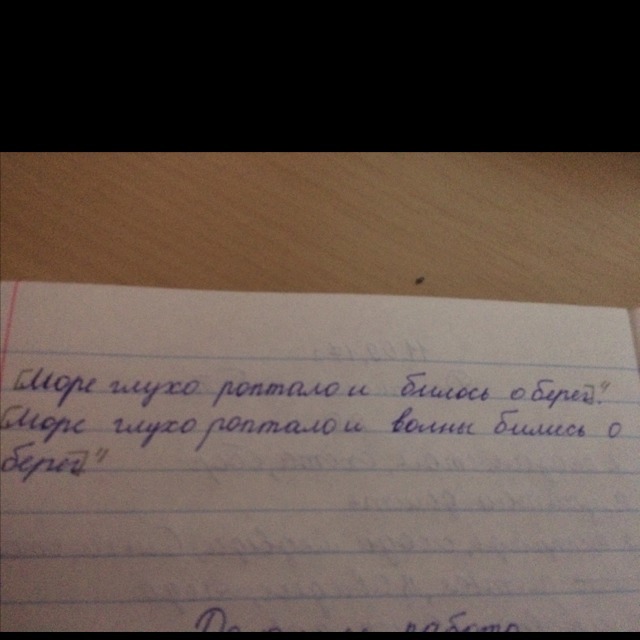 [Море глухо роптало и билось о берег]."
[Море глухо роптало и волны бились о
берег]"
работа